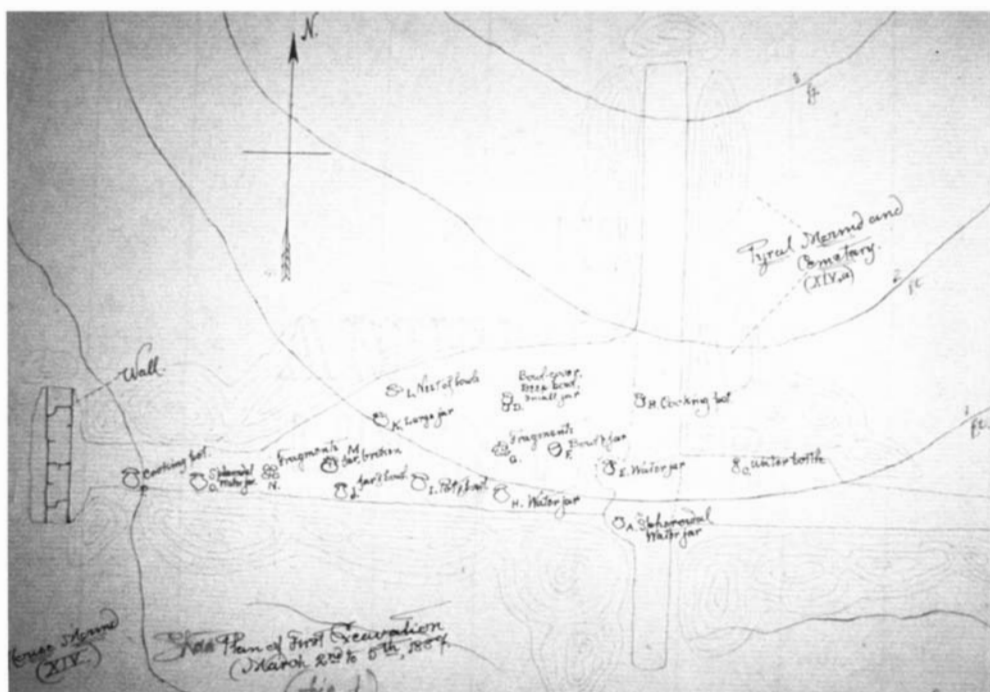 N.
3
ft.
Pyral Mound and
Cemetary.
(XIV,a)
2
ft.
1
ft.
Wall
L. Nest of bowls
Bowl cover,
Deep bowl,
Small jar
D.
B. Cooking pot
K. Large jar
Fragments
G.
Bowl & jar
F.
E. Water jar
C. Water bottle
Cooking pot.
Spheroidal
Water jar.
O.
Fragments
N.
M
Jar, broken
Jar & bowl
J.
I. Pot, bowl
H. Water jar
A. Spheroidal
Water jar
House Mound
(XIV.)
Plan of First Excavation
(March 2nd to 5th, 1887.
(fig. 1